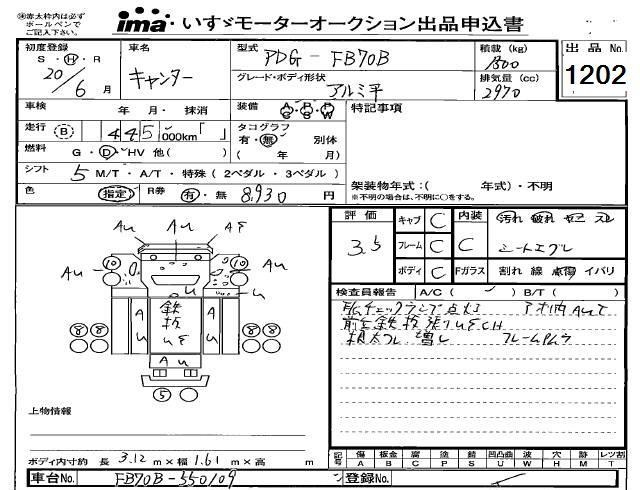 ㊟赤太枠内は必ず
ボールペンで
ご記入下さい。
ima いすゞモーターオークション出品申込書
出品 No.
1202
初度登録
S・H・R
20年
6月
車名
キャンター
型式
PDG-FB70B
グレード・ボディ形状
アルミ平
積載 (kg)
1800
排気量 (cc)
2970
車検 年 月・抹消
装備 A/C P/S P/W
特記事項
走行 B 445,000km「 」
タコグラフ
有・無 別体
( 年 月)
燃料 G・D・HV 他( )
シフト 5 M/T・A/T・特殊(2ペダル・3ペダル)
架装物年式:( 年式)・不明
※不明の場合は、不明に○をする。
色 指定 R券 有・無 8,930円
評価 3.5
キャブ C
内装 C
汚れ 破れ ヤニ スレ
フレーム C
シートエグレ
ボディ C
Fガラス 割れ 線 点傷 イバリ
検査員報告 A/C ( ) B/T ( )
エンジンチェックランプ点灯
フレーム
Au Au AE
10 10
Au Au
鉄板
UE
Au
8 8 8 8
5
上物情報
ボディ内寸約 長 3.12 m×幅 1.61 m×高 m
記号
傷 A
板金 B
腐 C
塗 P
錆 S
凹凸曲 U
波 W
欠 X
穴 H
跡 M
レツ割 T
車台No. FB70B-550109
登録No.